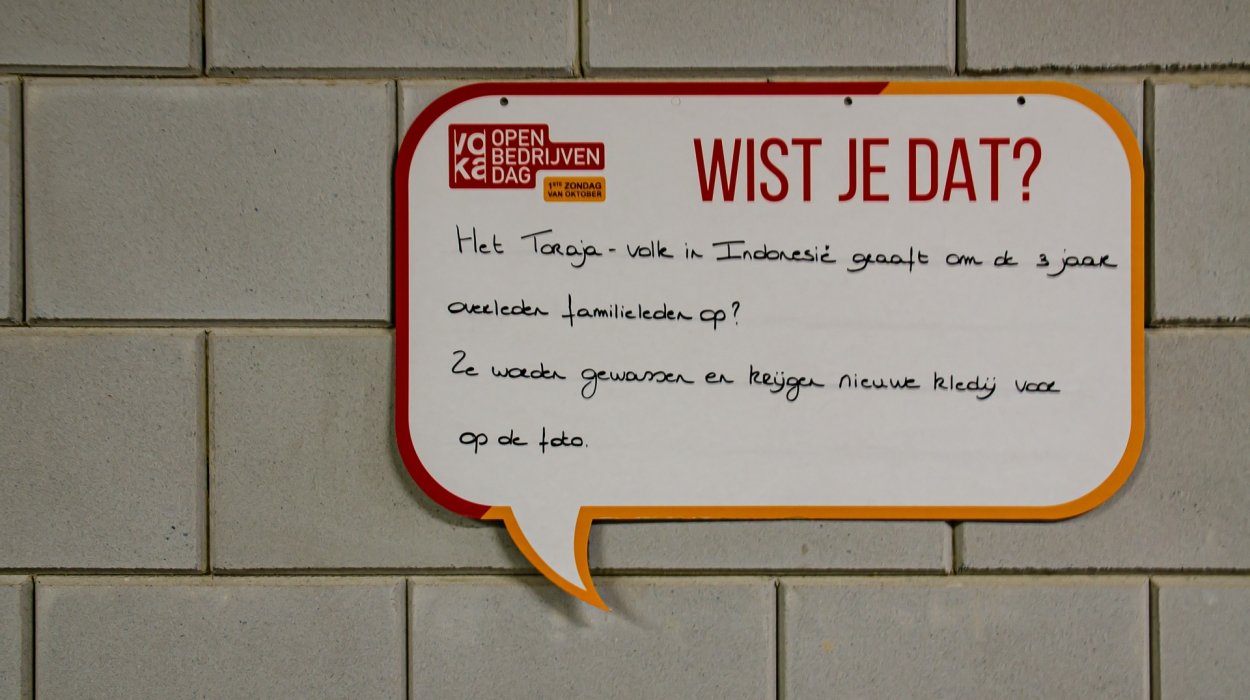 voka
OPEN
BEDRIJVEN
DAG
1STE ZONDAG
VAN OKTOBER
WIST JE DAT?
Het Toraja-volk in Indonesië graaft om de 3 jaar
overleden familieleden op?
Ze worden gewassen en krijgen nieuwe kledij voor
op de foto.